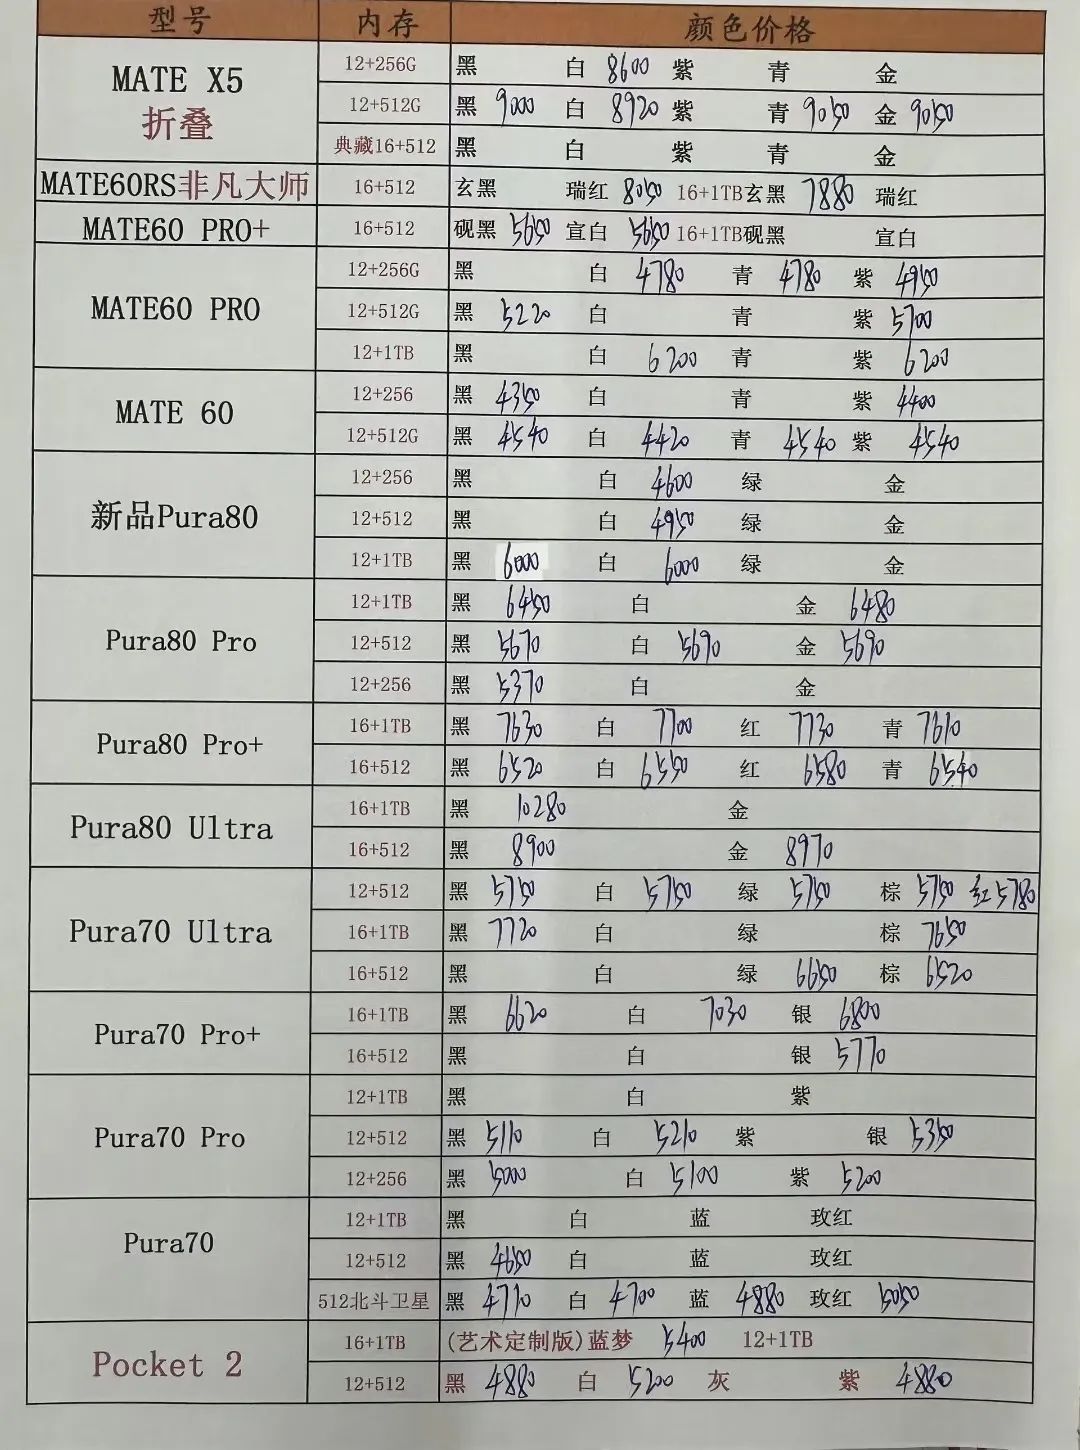 型号 内存 颜色价格
MATE X5 折叠 12+256G 黑 白 8600 紫 青 金
12+512G 黑 9000 白 8920 紫 青 9050 金 9050
典藏16+512 黑 白 紫 青 金
MATE60RS非凡大师 16+512 玄黑 瑞红 8050 16+1TB玄黑 7880 瑞红
MATE60 PRO+ 16+512 砚黑 5650 宣白 5650 16+1TB砚黑 宣白
MATE60 PRO 12+256G 黑 白 4780 青 4780 紫 4950
12+512G 黑 5220 白 青 紫 5700
12+1TB 黑 白 6200 青 紫 6200
MATE 60 12+256 黑 4350 白 青 紫 4400
12+512G 黑 4540 白 4420 青 4540 紫 4540
新品Pura80 12+256 黑 白 4600 绿 金
12+512 黑 白 4950 绿 金
12+1TB 黑 6000 白 6000 绿 金
Pura80 Pro 12+1TB 黑 6450 白 金 6480
12+512 黑 5670 白 5690 金 5690
12+256 黑 5370 白 金
Pura80 Pro+ 16+1TB 黑 7630 白 7700 红 7730 青 7610
16+512 黑 6520 白 6550 红 6580 青 6540
Pura80 Ultra 16+1TB 黑 10280 金
16+512 黑 8900 金 8970
Pura70 Ultra 12+512 黑 5750 白 5750 绿 5750 棕 5750 红5780
16+1TB 黑 7720 白 绿 棕 7650
16+512 黑 白 绿 6650 棕 6520
Pura70 Pro+ 16+1TB 黑 6620 白 7030 银 6800
16+512 黑 白 银 5770
Pura70 Pro 12+1TB 黑 白 紫
12+512 黑 5110 白 5210 紫 银 5350
12+256 黑 5000 白 5100 紫 5200
Pura70 12+1TB 黑 白 蓝 玫红
12+512 黑 4650 白 蓝 玫红
512北斗卫星 黑 4710 白 4700 蓝 4880 玫红 5050
Pocket 2 16+1TB (艺术定制版)蓝梦 5400 12+1TB
12+512 黑 4880 白 5200 灰 紫 4880